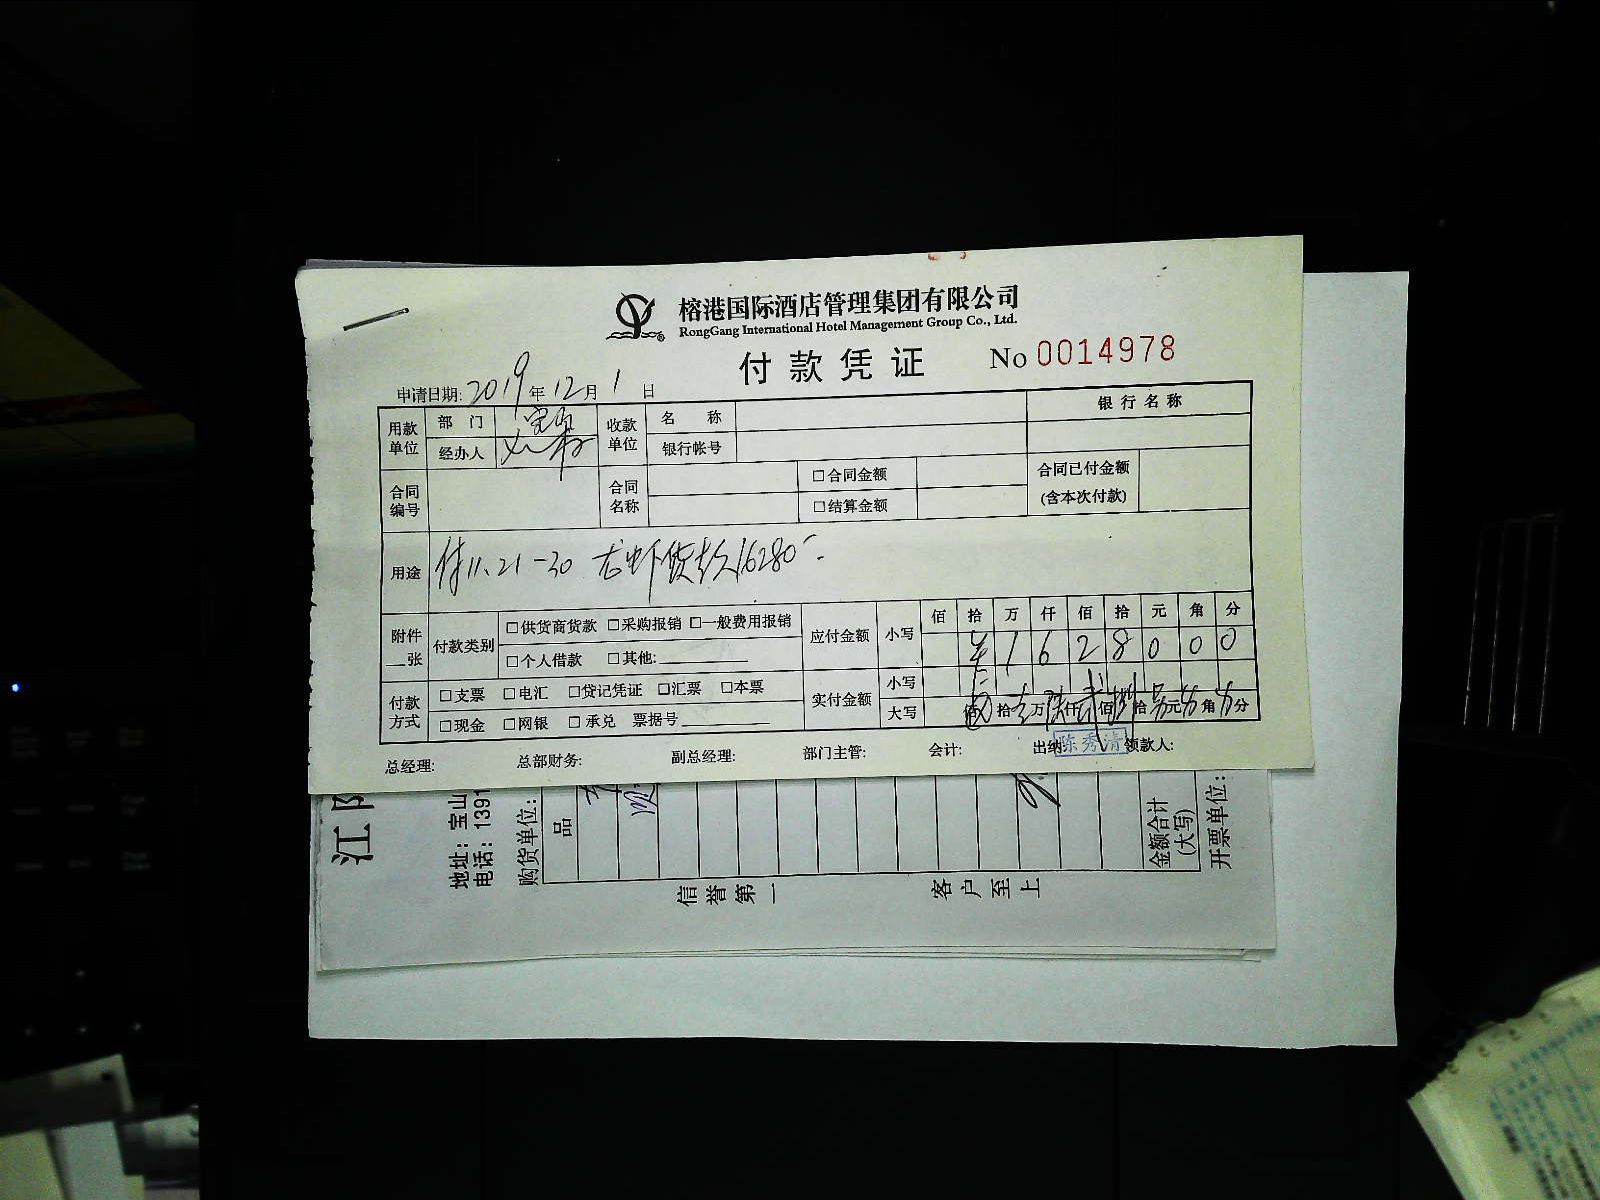 榕港国际酒店管理集团有限公司
RongGang International Hotel Management Group Co., Ltd.
付款凭证 No 0014978
申请日期: 2019年12月1日
用款单位 部门 收款单位 名称 银行名称
经办人 银行帐号
合同编号 合同名称 □合同金额 合同已付金额(含本次付款)
□结算金额
用途 付11、21-30 龙虾货款16280
附件__张 付款类别 □供货商货款 □采购报销 □一般费用报销 应付金额 小写 佰 拾 万 仟 佰 拾 元 角 分
□个人借款 □其他: 1 6 2 8 0 0 0
付款方式 □支票 □电汇 □贷记凭证 □汇票 □本票 实付金额 小写
□现金 □网银 □承兑 票据号 大写 佰 拾 万 仟 佰 拾 元 角 分
总经理: 总部财务: 副总经理: 部门主管: 会计: 出纳 陈秀清 领款人:
江
地址: 宝山
电话: 1391
购货单位:
品
信誉第一
客户至上
金额合计
(大写)
开票单位: